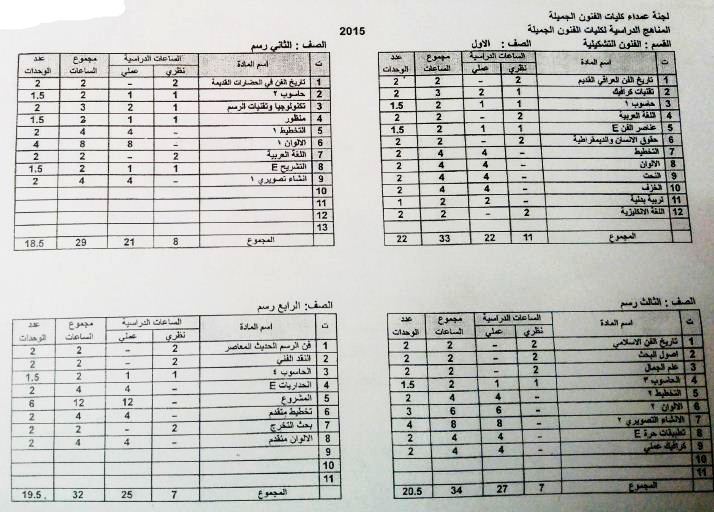 لجنة عمداء كليات الفنون الجميلة
المناهج الدراسية لكليات الفنون الجميلة
2015
القسم : الفنون التشكيلية الصف : الاول
ت اسم المادة الساعات الدراسية مجموع الساعات عدد الوحدات
نظري عملي
1 تاريخ الفن العراقي القديم 2 - 2 2
2 تقنيات كرافيك 1 2 3 2
3 حاسوب ١ 1 1 2 1.5
4 اللغة العربية 2 - 2 2
5 عناصر الفن E 1 1 2 1.5
6 حقوق الانسان والديمقراطية 2 - 2 2
7 التخطيط - 4 4 2
8 الالوان - 4 4 2
9 النحت - 4 4 2
10 الخزف - 4 4 2
11 تربية بدنية - 2 2 1
12 اللغة الانكليزية 2 - 2 2
المجموع 11 22 33 22
الصف : الثاني رسم
ت اسم المادة الساعات الدراسية مجموع الساعات عدد الوحدات
نظري عملي
1 تاريخ الفن في الحضارات القديمة 2 - 2 2
2 حاسوب ٢ 1 1 2 1.5
3 تكنولوجيا وتقنيات الرسم 1 2 3 2
4 منظور 1 1 2 1.5
5 التخطيط ١ - 4 4 2
6 الالوان ١ - 8 8 4
7 اللغة العربية 2 - 2 2
8 التشريح E 1 1 2 1.5
9 انشاء تصويري ١ - 4 4 2
10
11
12
13
المجموع 8 21 29 18.5
الصف : الثالث رسم
ت اسم المادة الساعات الدراسية مجموع الساعات عدد الوحدات
نظري عملي
1 تاريخ الفن الاسلامي 2 - 2 2
2 اصول البحث 2 - 2 2
3 علم الجمال 2 - 2 2
4 الحاسوب ٣ 1 1 2 1.5
5 التخطيط ٢ - 4 4 2
6 الالوان ٢ - 6 6 3
7 الانشاء التصويري ٢ - 8 8 4
8 تطبيقات حرة E - 4 4 2
9 كرافيك عملي - 4 4 2
10
11
المجموع 7 27 34 20.5
الصف: الرابع رسم
ت اسم المادة الساعات الدراسية مجموع الساعات عدد الوحدات
نظري عملي
1 فن الرسم الحديث المعاصر 2 - 2 2
2 النقد الفني 2 - 2 2
3 الحاسوب ٤ 1 1 2 1.5
4 الجداريات E - 4 4 2
5 المشروع - 12 12 6
6 تخطيط متقدم - 4 4 2
7 بحث التخرج 2 - 2 2
8 الالوان متقدم - 4 4 2
9
10
11
المجموع 7 25 32 19.5